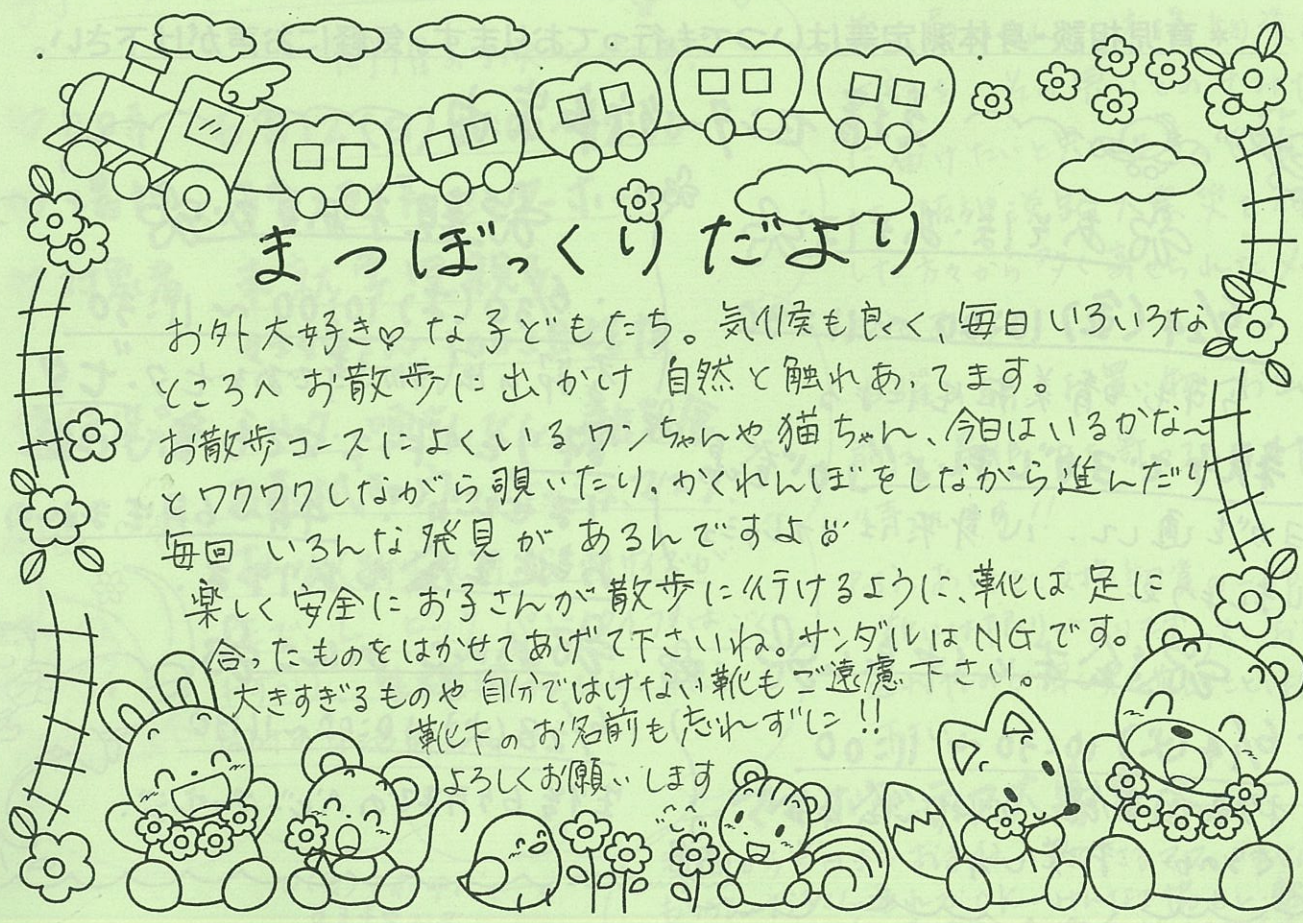 まつぼっくりだより
お外大好き♡な子どもたち。気候も良く、毎日いろいろな
ところへお散歩に出かけ 自然と触れあってます。
お散歩コースによくいるワンちゃんや猫ちゃん、今日はいるかな〜
とワクワクしながら覗いたり、かくれんぼをしながら進んだり
毎回 いろんな発見があるんですよ
楽しく安全にお子さんが散歩に行けるように、靴は足に
合ったものをはかせてあげて下さいね。サンダルはNGです。
大きすぎるものや自分ではけない靴もご遠慮下さい。
靴下のお名前も忘れずに!!
よろしくお願いします